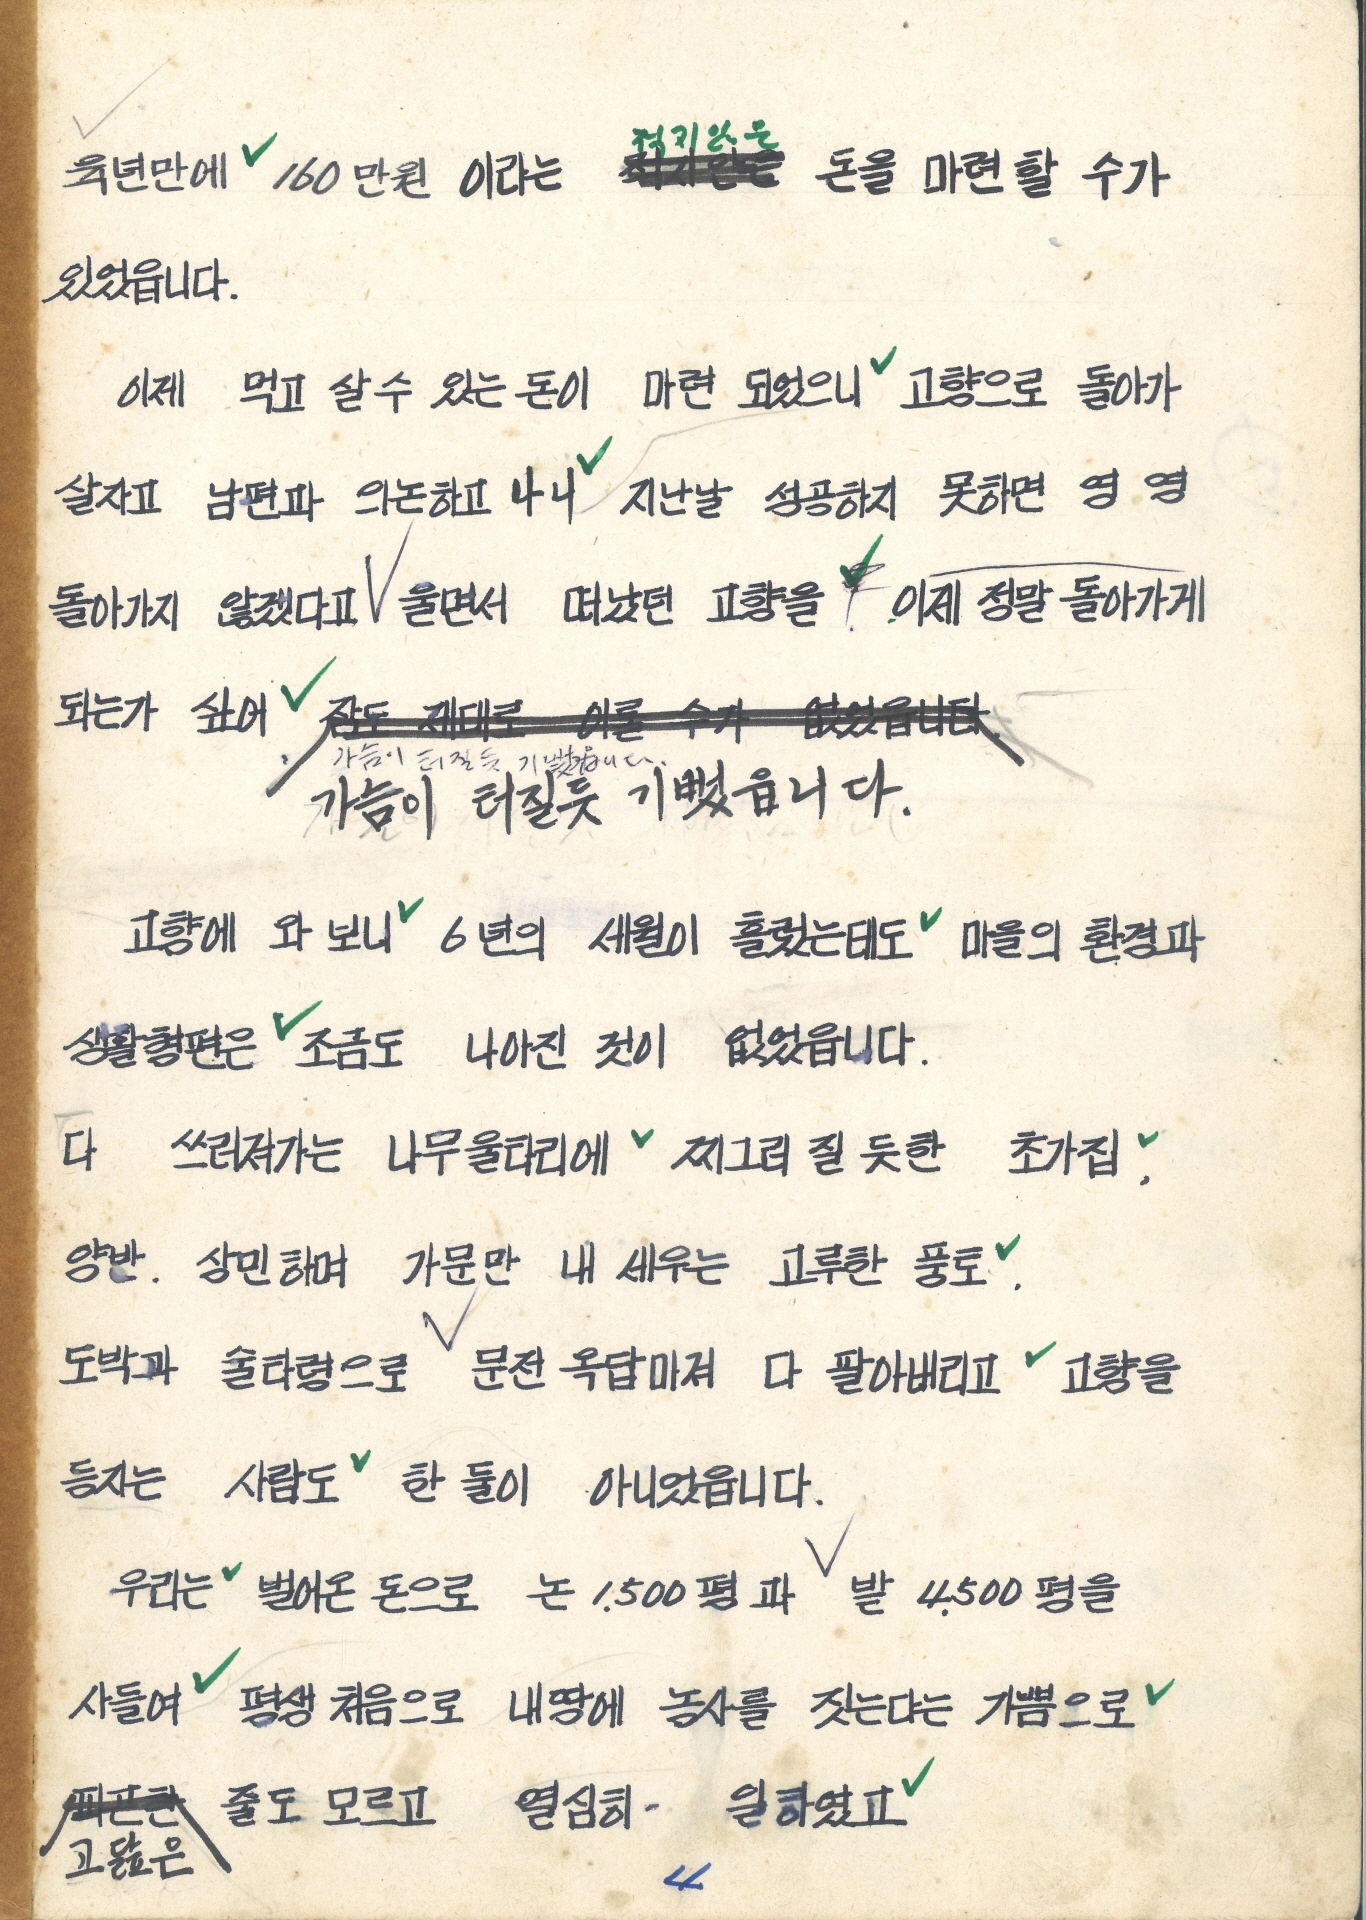 적지않은
육년만에 160만원 이라는 적지않은 돈을 마련할 수가
있었읍니다.
이제 먹고 살수 있는 돈이 마련 되었으니 고향으로 돌아가
살자고 남편과 의논하고 나니 지난날 성공하지 못하면 영 영
돌아가지 않겠다고 울면서 떠났던 고향을 이제 정말 돌아가게
되는가 싶어 잠도 제대로 이룰 수가 없었읍니다.
가슴이 터질듯 기뻤읍니다.
가슴이 터질듯 기뻤읍니다.
고향에 와 보니 6년의 세월이 흘렀는데도 마을의 환경과
생활형편은 조금도 나아진 것이 없었읍니다.
다 쓰러져가는 나무울타리에 찌그러 질 듯한 초가집.
양반. 상민하며 가문만 내 세우는 고루한 풍토.
도박과 술타령으로 문전 옥답마져 다 팔아버리고 고향을
등지는 사람도 한 둘이 아니었읍니다.
우리는 벌어온 돈으로 논 1,500평과 밭 4,500평을
사들여 평생 처음으로 내땅에 농사를 짓는다는 기쁨으로
피곤한 줄도 모르고 열심히 일하였고
고닲은
4